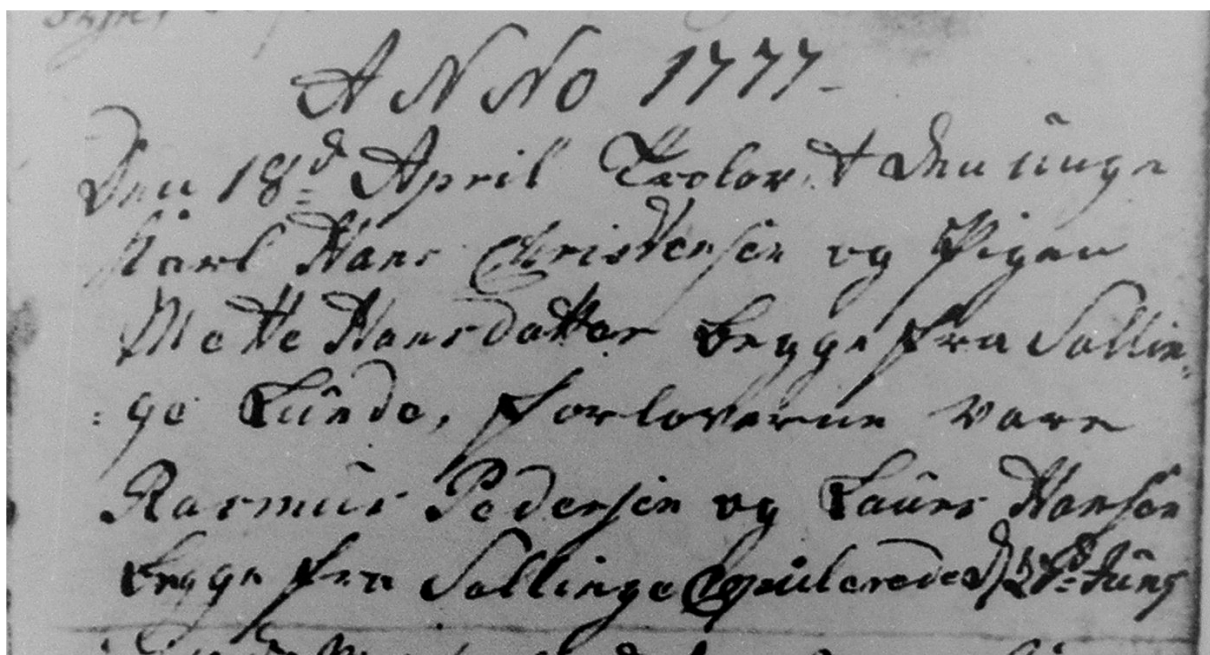 ANNO 1777-
Den 18d April Trolov.t den unge
Karl Hans Christensen og Pigen
Mette Hansdatter begge fra Sallin-
ge Lunde, Forloverne vare
Rasmus Pedersen og Laurs Hansen
begge fra Sallinge Copulerede d. Juny